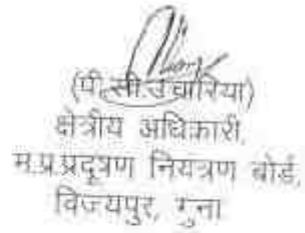 (पी.सी.उचारिया)
क्षेत्रीय अधिकारी,
म.प्र.प्रदूषण नियंत्रण बोर्ड,
विजयपुर, गुना